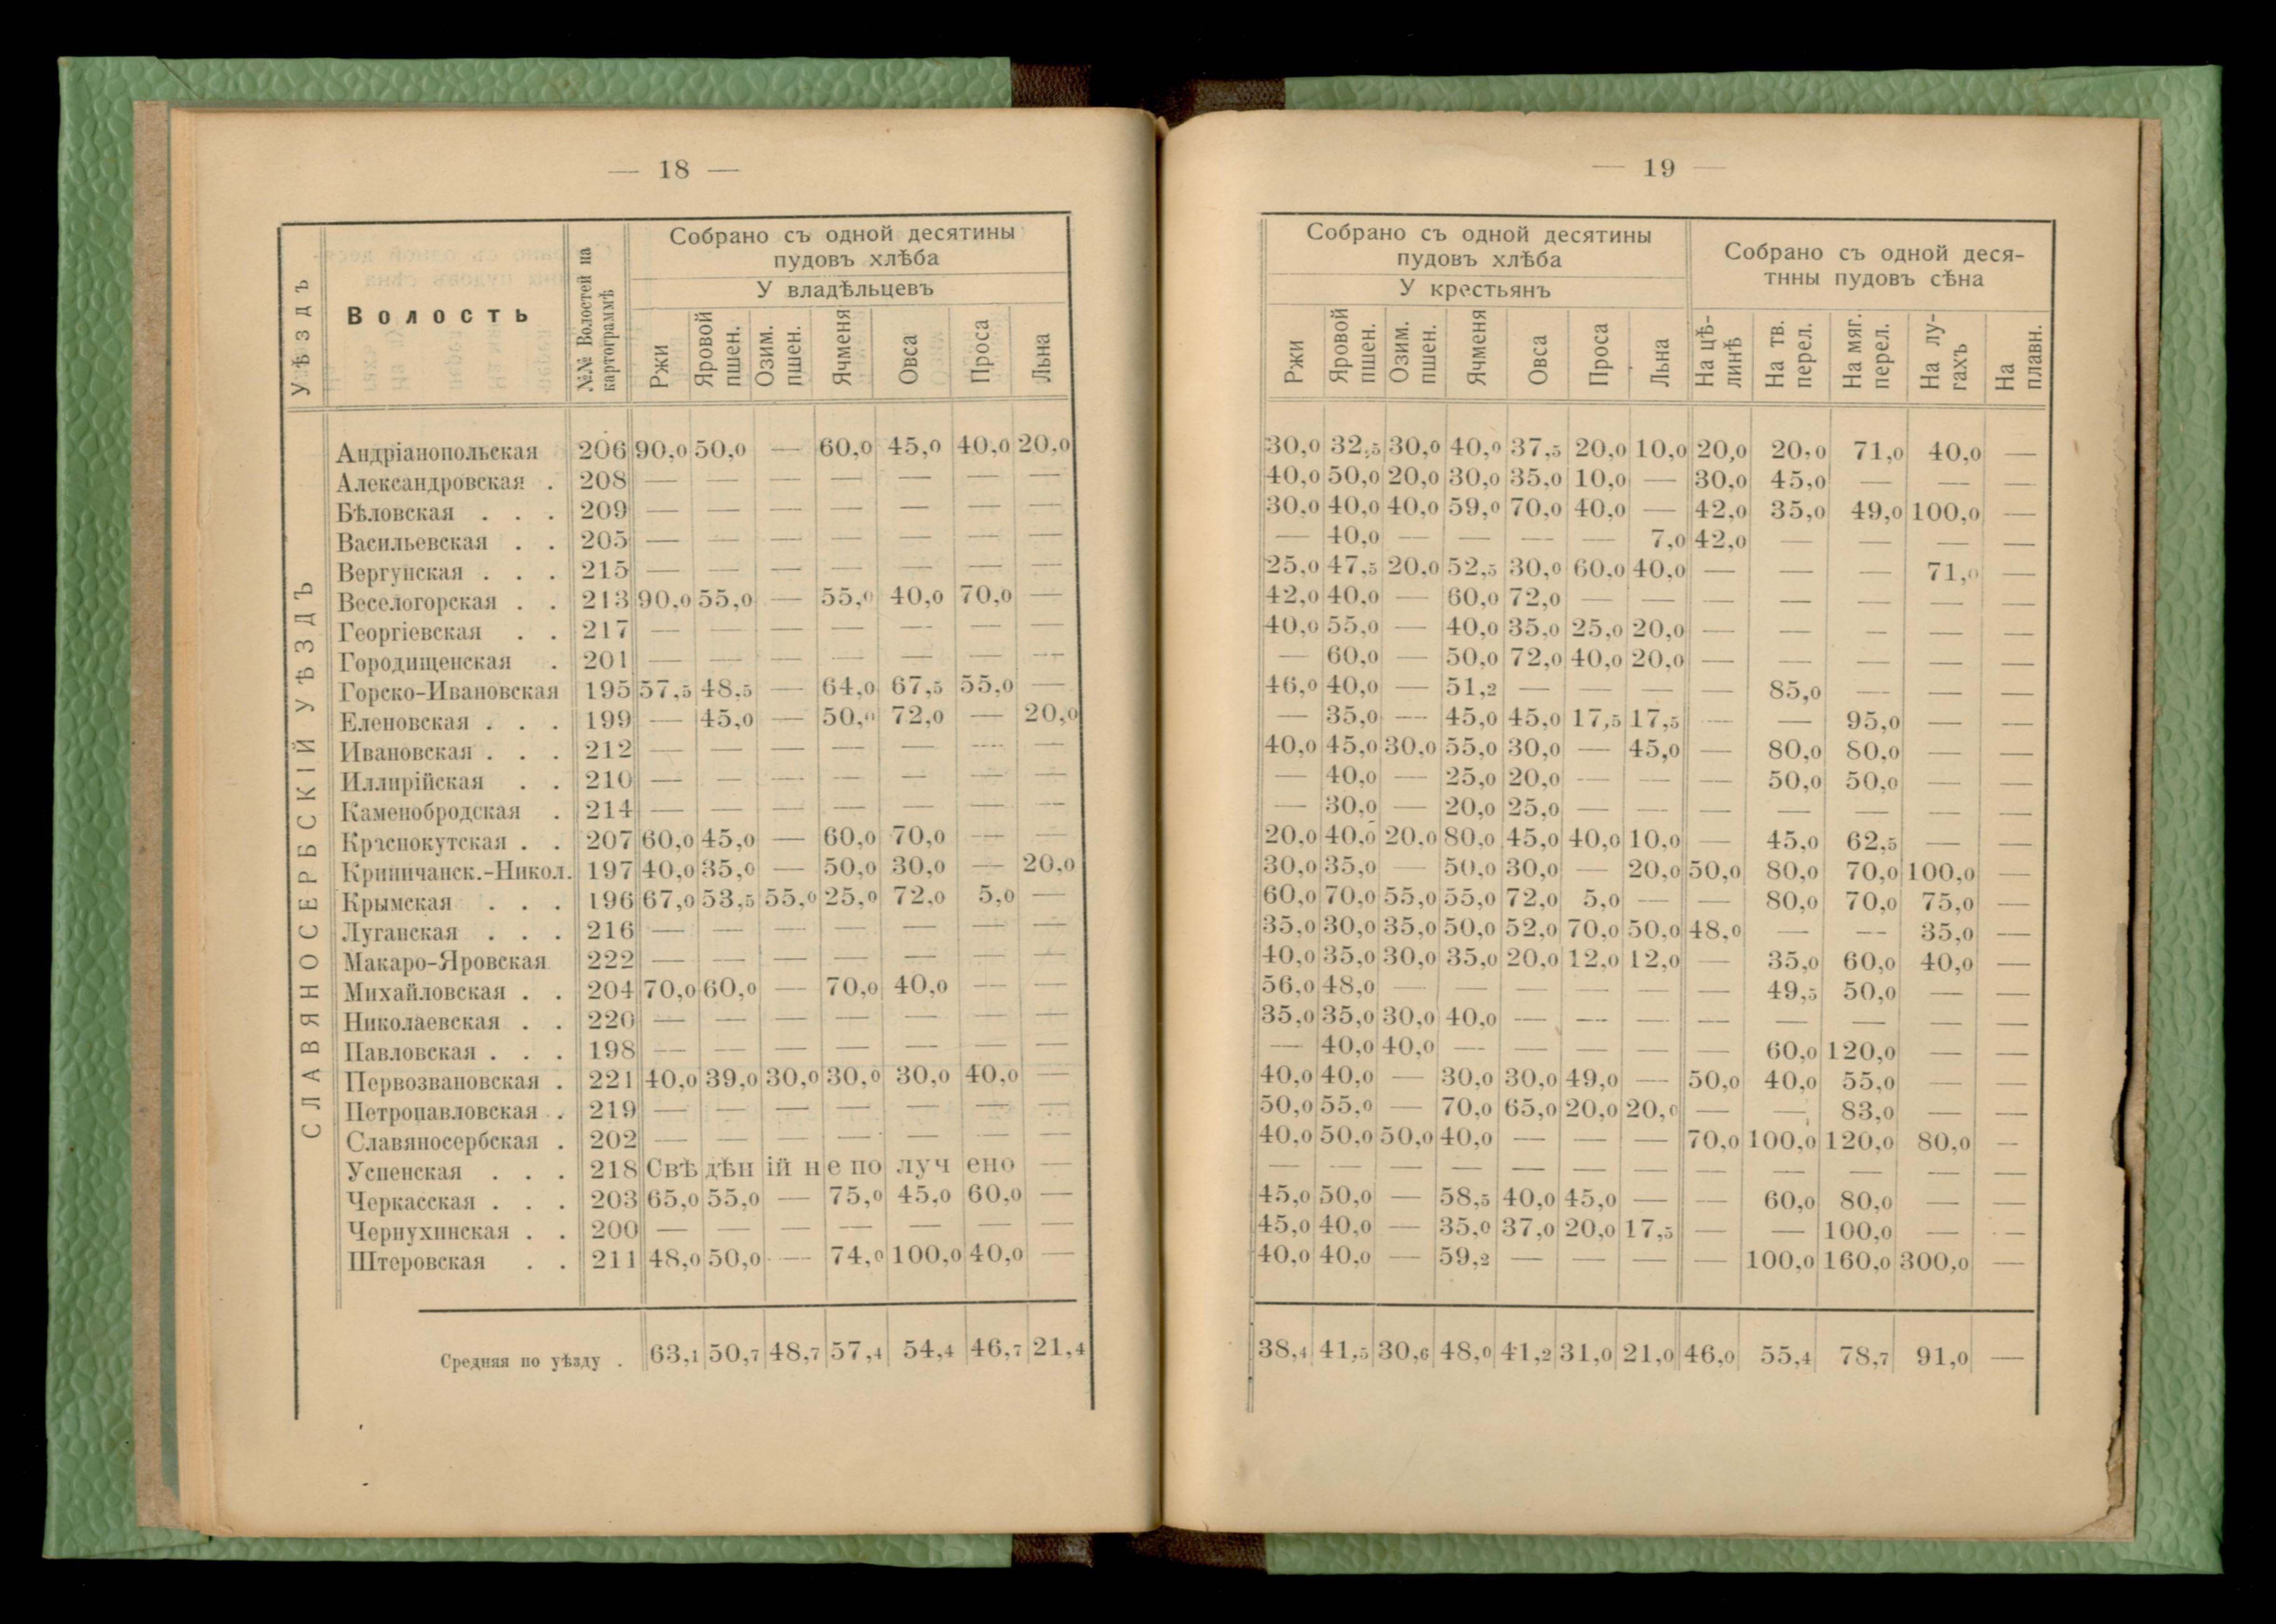 — 18 —
Уѣздъ
Волость
№№ Волостей на картограммѣ
Собрано съ одной десятины
пудовъ хлѣба
У владѣльцевъ
Ржи
Яровой пшен.
Озим. пшен.
Ячменя
Овса
Проса
Льна
СЛАВЯНОСЕРБСКІЙ УѢЗДЪ
Андріанопольская 206 90,0 50,0 — 60,0 45,0 40,0 20,0
Александровская . 208 — — — — — — —
Бѣловская . . . 209 — — — — — — —
Васильевская . . 205 — — — — — — —
Вергунская . . . 215 — — — — — — —
Веселогорская . . 213 90,0 55,0 — 55,0 40,0 70,0 —
Георгіевская . . 217 — — — — — — —
Городищенская . 201 — — — — — — —
Горско-Ивановская 195 57,5 48,5 — 64,0 67,5 55,0 —
Еленовская . . . 199 — 45,0 — 50,0 72,0 — 20,0
Ивановская . . . 212 — — — — — — —
Иллирійская . . 210 — — — — — — —
Каменобродская . 214 — — — — — — —
Краснокутская . . 207 60,0 45,0 — 60,0 70,0 — —
Криничанск.-Никол. 197 40,0 35,0 — 50,0 30,0 — 20,0
Крымская . . . 196 67,0 53,5 55,0 25,0 72,0 5,0 —
Луганская . . . 216 — — — — — — —
Макаро-Яровская 222 — — — — — — —
Михайловская . . 204 70,0 60,0 — 70,0 40,0 — —
Николаевская . . 220 — — — — — — —
Павловская . . . 198 — — — — — — —
Первозвановская . 221 40,0 39,0 30,0 30,0 30,0 40,0 —
Петропавловская . 219 — — — — — — —
Славяносербская . 202 — — — — — — —
Успенская . . . 218 Свѣдѣній не получено —
Черкасская . . . 203 65,0 55,0 — 75,0 45,0 60,0 —
Чернухинская . . 200 — — — — — — —
Штеровская . . 211 48,0 50,0 — 74,0 100,0 40,0 —
Средняя по уѣзду . 63,1 50,7 48,7 57,4 54,4 46,7 21,4
— 19 —
Собрано съ одной десятины
пудовъ хлѣба
У крестьянъ
Собрано съ одной деся-
тнны пудовъ сѣна
Ржи
Яровой пшен.
Озим. пшен.
Ячменя
Овса
Проса
Льна
На цѣ-
линѣ
На тв. перел.
На мяг. перел.
На лу-
гахъ
На плавн.
30,0 32,5 30,0 40,0 37,5 20,0 10,0 20,0 20,0 71,0 40,0 —
40,0 50,0 20,0 30,0 35,0 10,0 — 30,0 45,0 — — —
30,0 40,0 40,0 59,0 70,0 40,0 — 42,0 35,0 49,0 100,0 —
— 40,0 — — — — 7,0 42,0 — — — —
25,0 47,5 20,0 52,5 30,0 60,0 40,0 — — — 71,0 —
42,0 40,0 — 60,0 72,0 — — — — — — —
40,0 55,0 — 40,0 35,0 25,0 20,0 — — — — —
— 60,0 — 50,0 72,0 40,0 20,0 — — — — —
46,0 40,0 — 51,2 — — — — 85,0 — — —
— 35,0 — 45,0 45,0 17,5 17,5 — — 95,0 — —
40,0 45,0 30,0 55,0 30,0 — 45,0 — 80,0 80,0 — —
— 40,0 — 25,0 20,0 — — — 50,0 50,0 — —
— 30,0 — 20,0 25,0 — — — — — — —
20,0 40,0 20,0 80,0 45,0 40,0 10,0 — 45,0 62,5 — —
30,0 35,0 — 50,0 30,0 — 20,0 50,0 80,0 70,0 100,0 —
60,0 70,0 55,0 55,0 72,0 5,0 — — 80,0 70,0 75,0 —
35,0 30,0 35,0 50,0 52,0 70,0 50,0 48,0 — — 35,0 —
40,0 35,0 30,0 35,0 20,0 12,0 12,0 — 35,0 60,0 40,0 —
56,0 48,0 — — — — — — 49,5 50,0 — —
35,0 35,0 30,0 40,0 — — — — — — — —
— 40,0 40,0 — — — — — 60,0 120,0 — —
40,0 40,0 — 30,0 30,0 49,0 — 50,0 40,0 55,0 — —
50,0 55,0 — 70,0 65,0 20,0 20,0 — — 83,0 — —
40,0 50,0 50,0 40,0 — — — 70,0 100,0 120,0 80,0 —
— — — — — — — — — — — —
45,0 50,0 — 58,5 40,0 45,0 — — 60,0 80,0 — —
45,0 40,0 — 35,0 37,0 20,0 17,5 — — 100,0 — —
40,0 40,0 — 59,2 — — — — 100,0 160,0 300,0 —
38,4 41,5 30,6 48,0 41,2 31,0 21,0 46,0 55,4 78,7 91,0 —